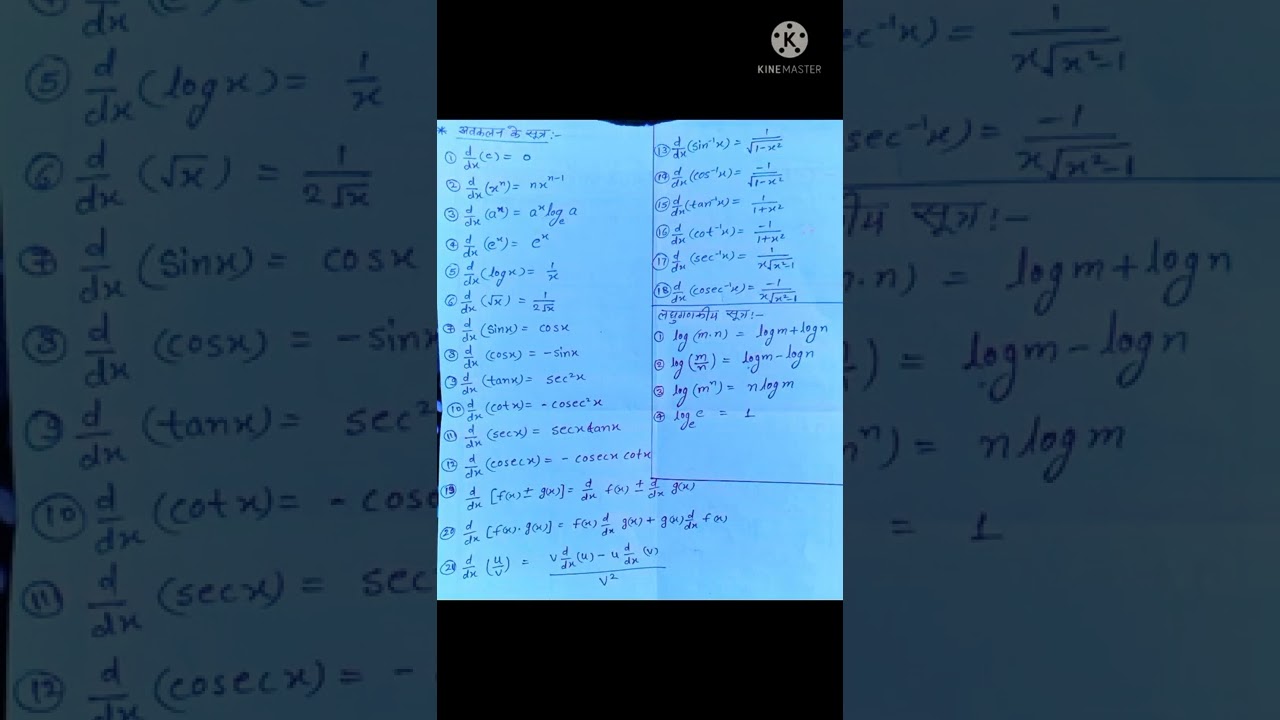 KINEMASTER
* अवकलन के सूत्र:-
① d/dx (c) = 0
② d/dx (xⁿ) = nxⁿ⁻¹
③ d/dx (aˣ) = aˣ logₑ a
④ d/dx (eˣ) = eˣ
⑤ d/dx (log x) = 1/x
⑥ d/dx (√x) = 1/2√x
⑦ d/dx (sinx) = cosx
⑧ d/dx (cosx) = -sinx
⑨ d/dx (tanx) = sec²x
⑩ d/dx (cotx) = -cosec²x
⑪ d/dx (secx) = secx tanx
⑫ d/dx (cosecx) = - cosecx cotx
⑬ d/dx (sin⁻¹x) = 1/√1-x²
⑭ d/dx (cos⁻¹x) = -1/√1-x²
⑮ d/dx (tan⁻¹x) = 1/1+x²
⑯ d/dx (cot⁻¹x) = -1/1+x²
⑰ d/dx (sec⁻¹x) = 1/x√x²-1
⑱ d/dx (cosec⁻¹x) = -1/x√x²-1
लघुगणकीय सूत्र:-
① log (m·n) = logm + logn
② log (m/n) = logm - logn
③ log (mⁿ) = n logm
④ logₑ e = 1
⑲ d/dx [f(x) ± g(x)] = d/dx f(x) ± d/dx g(x)
⑳ d/dx [f(x)·g(x)] = f(x) d/dx g(x) + g(x) d/dx f(x)
㉑ d/dx (u/v) = v d/dx (u) - u d/dx (v) / v²